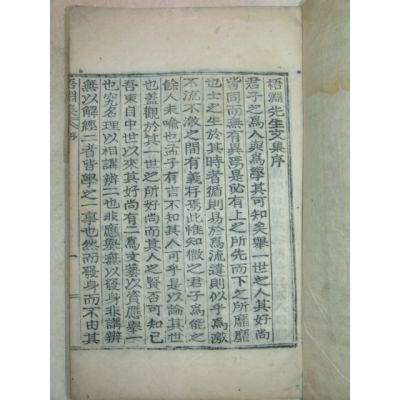 梧淵先生文集序
君子之爲人與爲學其可知矣舉一世之人其好尚
皆同而無有異焉是必有上之所先而下之所靡靡
也士之生於其時者循則易於爲流違則似乎爲激
不流不激之間有義存焉此惟知微之君子爲能之
餘人未喻也孟子有言不知其人可乎是以論其世
也蓋觀於其一世之所好尚而其人之賢否可知已
吾東自中世以來其好尚有二焉文藝以資應舉一
也究名理以相講辨二也非應舉無以發身非講辨
無以解經二者皆學之一事也然而發身而不由其
梧淵集 序